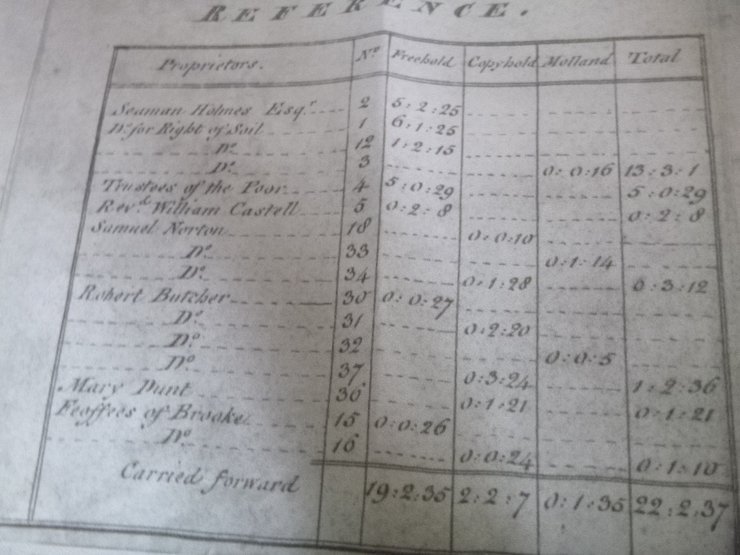 REFERENCE.
Proprietors. No. Freehold Copyhold Molland Total
Seaman Holmes Esqr. 2 5:2:25
Do. for Right of Soil 1 6:1:25
Do. 12 1:2:15
Do. 3 0:0:16 13:3:1
Trustees of the Poor 4 5:0:29 5:0:29
Revd. William Castell 5 0:2:8 0:2:8
Samuel Norton 18 0:0:10
Do. 33 0:1:14
Do. 34 0:1:28 0:3:12
Robert Butcher 30 0:0:27
Do. 31 0:2:20
Do. 32 0:0:5
Do. 37 0:3:24 1:2:36
Mary Dunt 36 0:1:21 0:1:21
Feoffees of Brooke 15 0:0:26
Do. 16 0:0:24 0:1:10
Carried forward 19:2:35 2:2:7 0:1:35 22:2:37